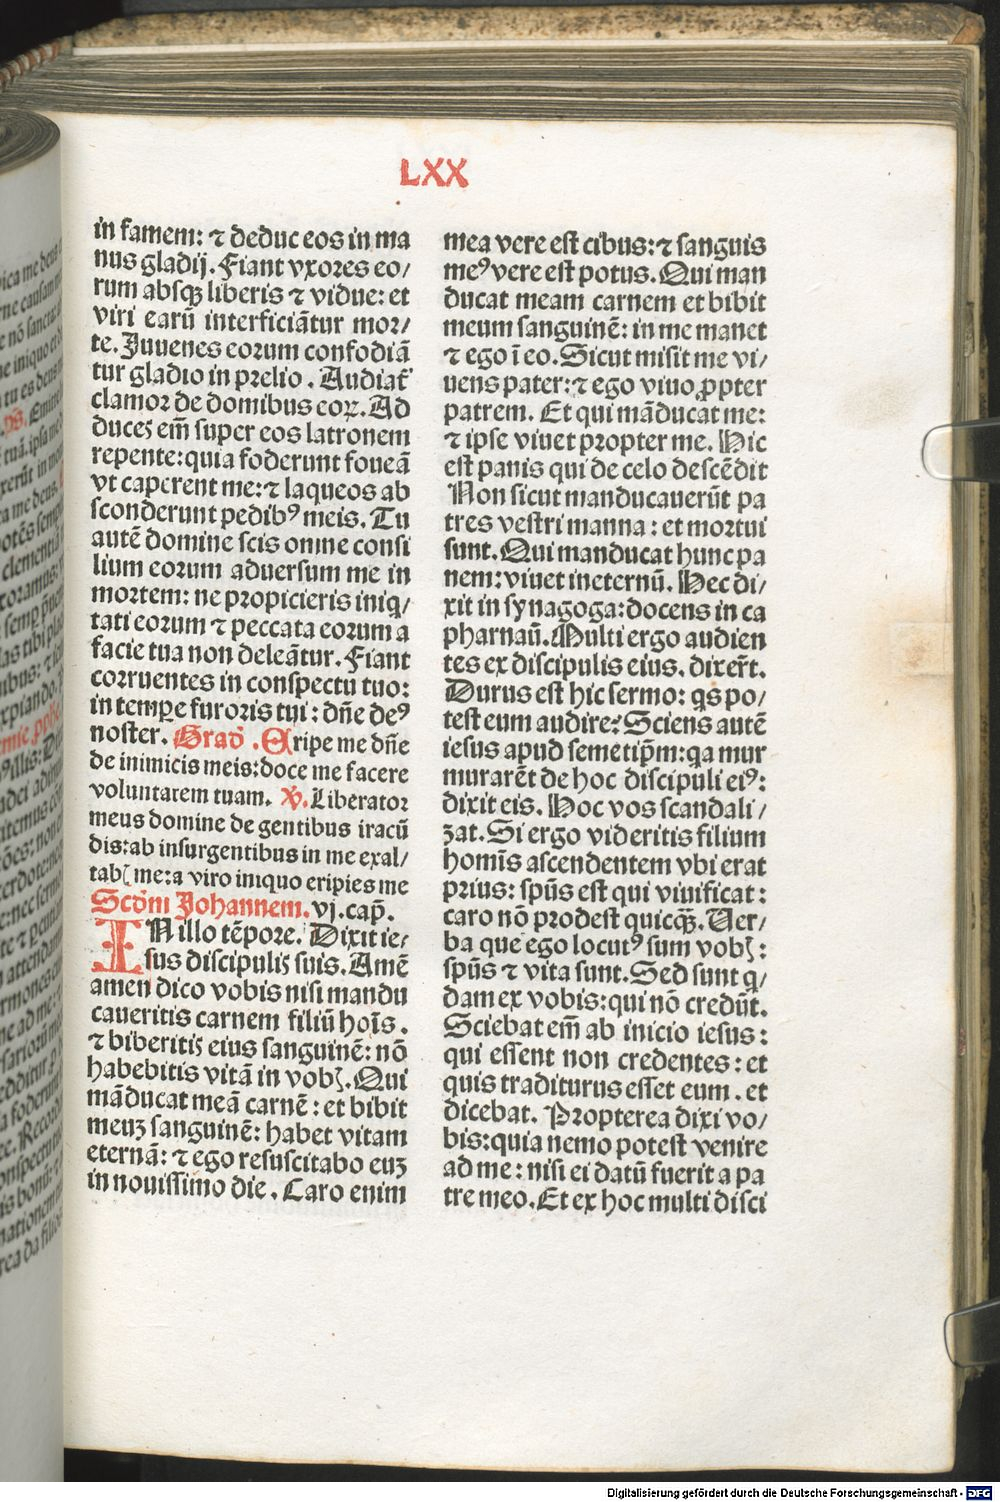 LXX
in famem: ⁊ deduc eos in ma
nus gladij. Fiant vxores eo/
rum absqꝫ liberis ⁊ vidue: et
viri earū interficiātur mor/
te. Juuenes eorum confodiā
tur gladio in prelio. Audiat᷑
clamor de domibus eoꝝ. Ad
duces em̄ super eos latronem
repente: quia foderunt foueā
vt caperent me: ⁊ laqueos ab
sconderunt pedibꝰ meis. Tu
autē domine scis omne consi
lium eorum aduersum me in
mortem: ne propicieris iniq̄/
tati eorum ⁊ peccata eorum a
facie tua non deleātur. Fiant
corruentes in conspectu tuo:
in tempe furoris tui: dn̄e deꝰ
noster. Grad̄. Eripe me dn̄e
de inimicis meis: doce me facere
voluntatem tuam. ℣. Liberator
meus domine de gentibus iracū
dis: ab insurgentibus in me exal/
tabꝭ me: a viro iniquo eripies me
Scd̄m Johannem. vj. cap̄.
IN illo tēpore. Dixit ie/
sus discipulis suis. Amē
amen dico vobis nisi mandu
caueritis carnem filiū hoīs.
⁊ biberitis eius sanguinē: nō
habebitis vitā in vobꝭ. Qui
māducat meā carnē: et bibit
meuꝫ sanguinē: habet vitam
eternā: ⁊ ego resuscitabo euꝫ
in nouissimo die. Caro enim
mea vere est cibus: ⁊ sanguis
meꝰ vere est potus. Qui man
ducat meam carnem et bibit
meum sanguinē: in me manet
⁊ ego ī eo. Sicut misit me vi/
uens pater: ⁊ ego viuo ꝓpter
patrem. Et qui māducat me:
⁊ ipse viuet propter me. Hic
est panis qui de celo descēdit
Non sicut manducauerūt pa
tres vestri manna: et mortui
sunt. Qui manducat hunc pa
nem: viuet ineternū. Hec di/
xit in synagoga: docens in ca
pharnaū. Multi ergo audien
tes ex discipulis eius. dixer̄t.
Durus est hic sermo: qs po/
test eum audire? Sciens autē
iesus apud semetip̄m: qa mur
murarēt de hoc discipuli eiꝰ:
dixit eis. Hoc vos scandali/
zat. Si ergo videritis filium
homīs ascendentem vbi erat
prius: spūs est qui viuificat:
caro nō prodest quicqꝫ. Uer/
ba que ego locutꝰ sum vobꝭ:
spūs ⁊ vita sunt. Sed sunt q̄/
dam ex vobis: qui nō credūt.
Sciebat em̄ ab inicio iesus:
qui essent non credentes: et
quis traditurus esset eum. et
dicebat. Propterea dixi vo/
bis: quia nemo potest venire
ad me: nisi ei datū fuerit a pa
tre meo. Et ex hoc multi disci
Digitalisierung gefördert durch die Deutsche Forschungsgemeinschaft - DFG